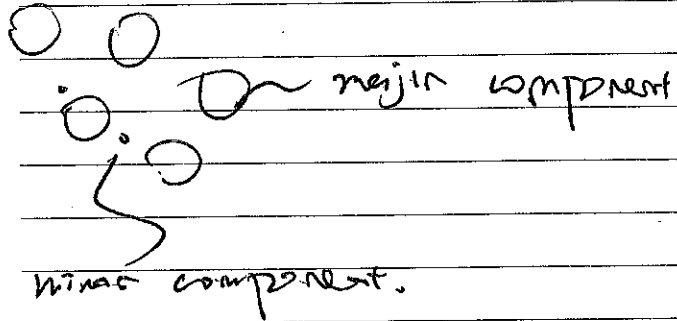 major component
minor component.